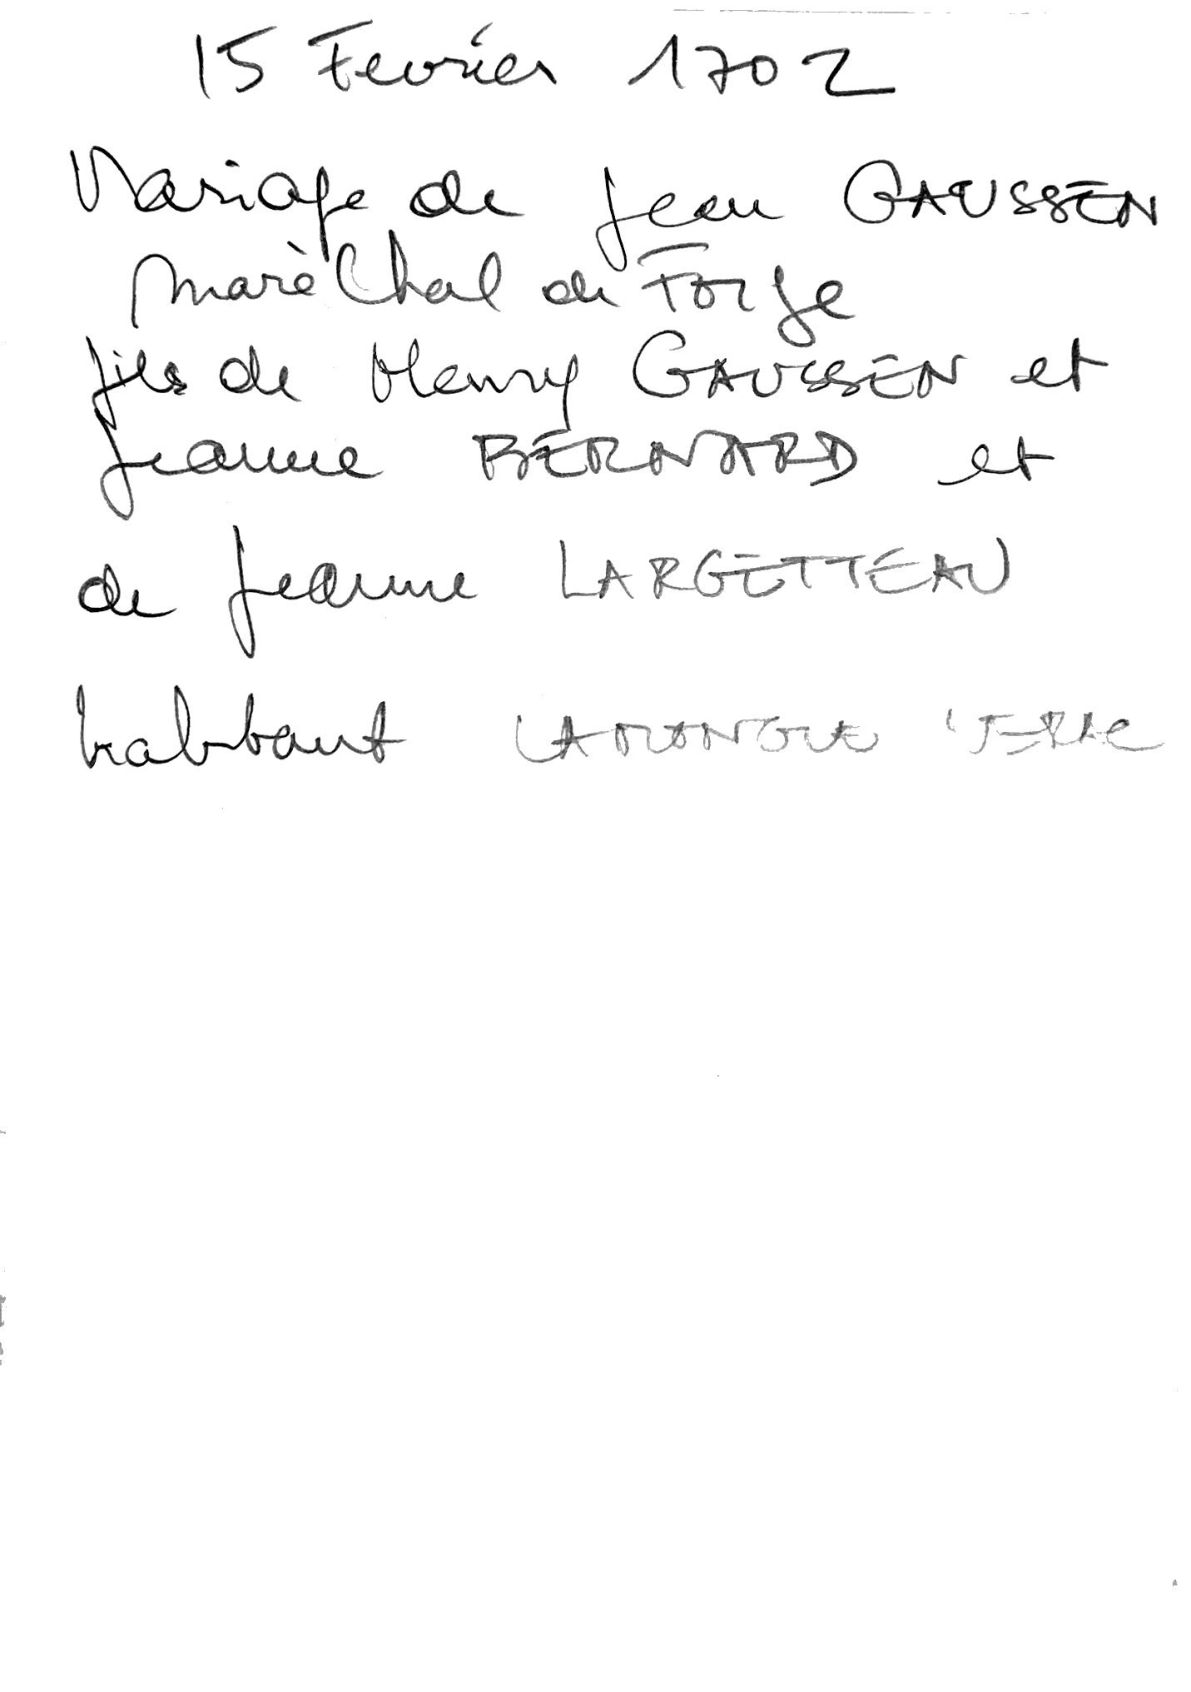 15 Fevrier 1702
Mariage de Jean GAUSSEN
marèChal de Forge
fils de Henry GAUSSEN et
Jeanne BERNARD et
de Jeanne LARGETTEAU
habbant